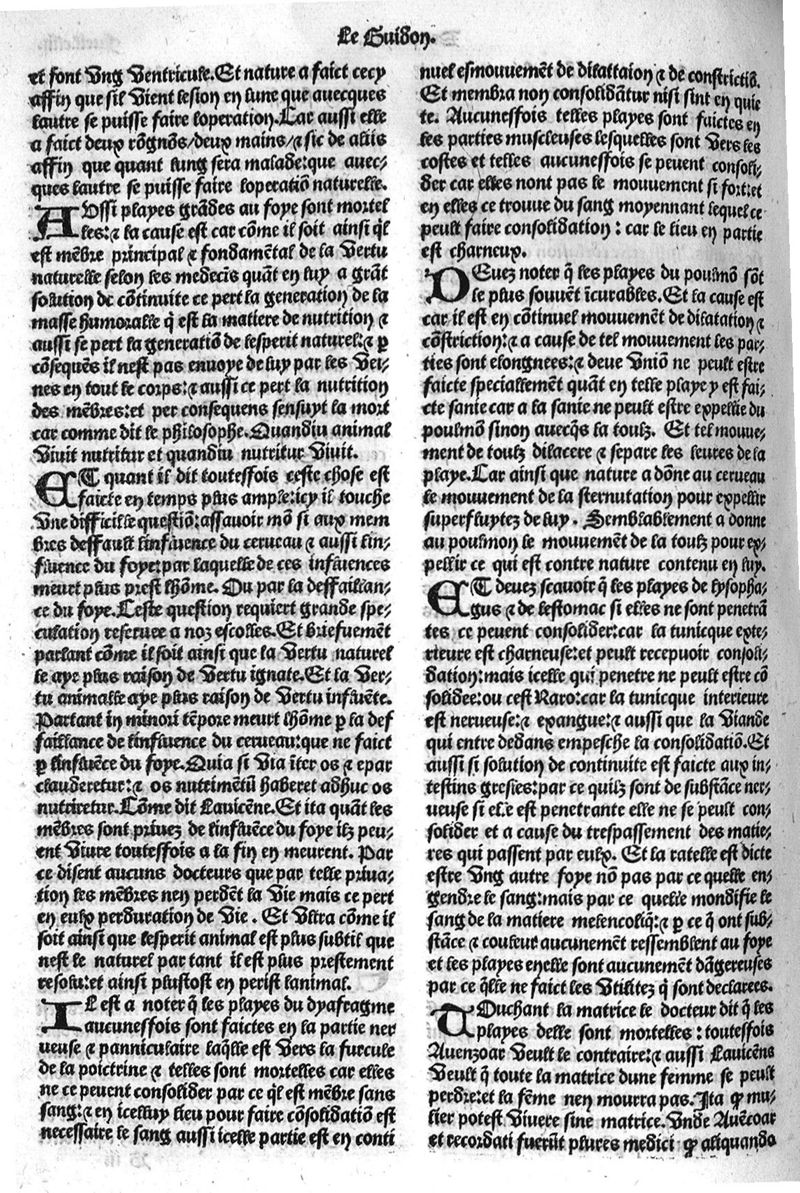 Le Guidon.
et font vng ventricule. Et nature a faict cecy
affin que sil vient lesion en lune que auecques
lautre se puisse faire loperation. Car aussi elle
a faict deux rõgnõs/deux mains/⁊ sic de aliis
affin que quant lung sera malade: que auec-
ques lautre se puisse faire loperatiõ naturelle.
AUssi playes grãdes au foye sont mortel
les: ⁊ la cause est car cõme il soit ainsi q̃l
est mẽbre principal ⁊ fondamẽtal de la vertu
naturelle selon les medecĩs quãt en luy a grãt
solution de cõtinuite ce pert la generation de la
masse humoralle q̃ est la matiere de nutrition ⁊
aussi se pert la generatiõ de lesperit naturel: ⁊ p
cõsequẽs il nest pas enuoye de luy par les vei-
nes en tout le corps: ⁊ aussi ce pert la nutrition
des mẽbres: et per consequens sensuyt la mort
car comme dit le philosophe. Quandiu animal
viuit nutritur et quandiu nutritur viuit.
ET quant il dit toutesfois ceste chose est
faicte en temps plus ample: icy il touche
vne difficille questiõ: assauoir mõ si aux mem
bres deffault linfluence du cerueau ⁊ aussi lin-
fluence du foye: par laquelle de ces influences
meurt plus prest lhõme. Ou par la deffaillan-
ce du foye. Ceste question requiert grande spe-
culation reseruee a noz escolles. Et briefuemẽt
parlant cõme il soit ainsi que la vertu naturel
le aye plus raison de vertu ignate. Et la ver-
tu animalle aye plus raison de vertu influẽte.
Partant in minori tẽpore meurt lhõme p la def
faillance de linfluence du cerueau: que ne faict
p linfluẽce du foye. Quia si via ĩter os ⁊ epar
clauderetur: ⁊ os nutrimẽtũ haberet adhuc os
nutriretur. Cõme dit Lauicẽne. Et ita quãt les
mẽbres sont priuez de linfluẽce du foye ilz peu-
ent viure toutesfois a la fin en meurent. Par
ce disent aucuns docteurs que par telle priua-
tion les mẽbres nen perdẽt la vie mais ce pert
en eulx perduration de vie. Et vltra cõme il
soit ainsi que lesperit animal est plus subtil que
nest le naturel par tant il est plus prestement
resolu: et ainsi plustost en perist lanimal.
IL est a noter q̃ les playes du dyafragme
aucunesfois sont faictes en la partie ner
ueuse ⁊ panniculaire laq̃lle est vers la furcule
de la poictrine ⁊ telles sont mortelles car elles
ne ce peuent consolider par ce q̃l est mẽbre sans
sang: ⁊ en icelluy lieu pour faire cõsolidatiõ est
necessaire le sang aussi icelle partie est en conti
nuel esmouuemẽt de dilattaion ⁊ de constrictiõ.
Et membra non consolidãtur nisi sint en quie
te. Aucunesfois telles playes sont faictes en
les parties muscleuses lesquelles sont vers les
costes et telles aucunesfois se peuent consoli-
der car elles nont pas le mouuement si fort: et
en elles ce trouue du sang moyennant lequel ce
peult faire consolidation: car le lieu en partie
est charneux.
DEuez noter q̃ les playes du poulmõ sõt
le plus souuẽt ĩcurables. Et la cause est
car il est en cõtinuel mouuemẽt de dilatation ⁊
cõstriction: ⁊ a cause de tel mouuement les par-
ties sont elongnees: ⁊ deue vniõ ne peult estre
faicte speciallemẽt quãt en telle playe y est fai-
cte sanie car a la sanie ne peult estre expellie du
poulmõ sinon auecq̃s la toulz. Et tel mouue-
ment de toulz dilacere ⁊ separe les leures de la
playe. Car ainsi que nature a dõne au cerueau
le mouuement de la sternutation pour expellir
superfluytez de luy. Semblablement a donne
au poulmon le mouuemẽt de la toulz pour ex-
pellir ce qui est contre nature contenu en luy.
ET deuez scauoir q̃ les playes de lysopha-
gus ⁊ de lestomac si elles ne sont penetrã
tes ce peuent consolider: car la tunicque exte-
rieure est charneuse: et peult recepuoir consoli-
dation: mais icelle qui penetre ne peult estre cõ
solidee: ou cest Raro: car la tunicque interieure
est nerueuse: ⁊ exangue: ⁊ aussi que la viande
qui entre dedans empesche la consolidatiõ. Et
aussi si solution de continuite est faicte aux in-
testins gresles: par ce quilz sont de substãce ner-
ueuse si elle est penetrante elle ne se peult con-
solider et a cause du trespassement des matie-
res qui passent par eulx. Et la ratelle est dicte
estre vng autre foye nõ pas par ce quelle en-
gendre le sang: mais par ce quelle mondifie le
sang de la matiere melencoliq̃: ⁊ p ce q̃ ont sub-
stãce ⁊ couleur aucunemẽt ressemblent au foye
et les playes enelle sont aucunemẽt dãgereuses
par ce q̃lle ne faict les vtilitez q̃ sont declarees.
TOuchant la matrice le docteur dit q̃ les
playes delle sont mortelles: toutesfois
Auenzoar veult le contraire: ⁊ aussi Lauicẽns
veult q̃ toute la matrice dune femme se peult
perdre: et la fẽme nen mourra pas. Ita ꝙ mu-
lier potest viuere sine matrice. Vnde Auẽzoar
et recordati fuerũt plures medici ꝙ aliquando